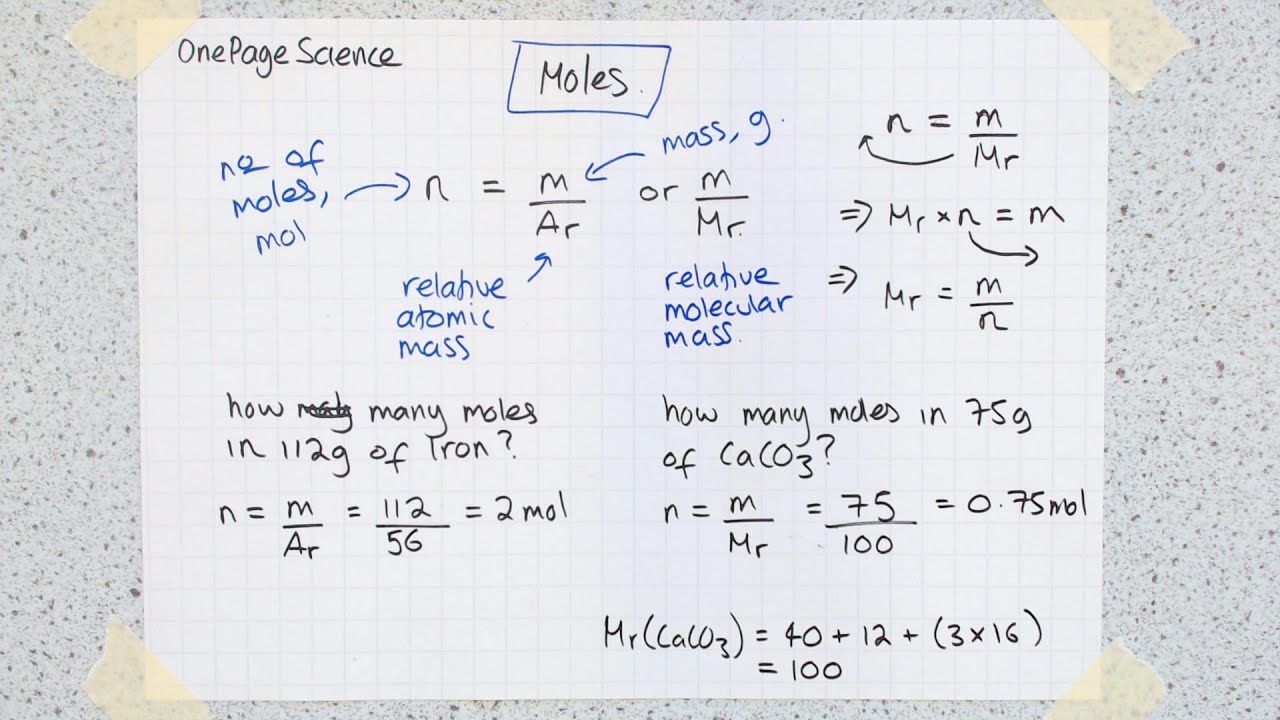 OnePage Science
Moles.
no of
moles,
mol
n = m/Ar or m/Mr.
mass, g.
relative
atomic
mass
relative
molecular
mass.
n = m/Mr
⇒ Mr × n = m
⇒ Mr = m/n
how many moles
in 112g of Iron?
n = m/Ar = 112/56 = 2 mol
how many moles in 75g
of CaCO₃?
n = m/Mr = 75/100 = 0.75mol
Mr(CaCO₃) = 40 + 12 + (3×16)
= 100